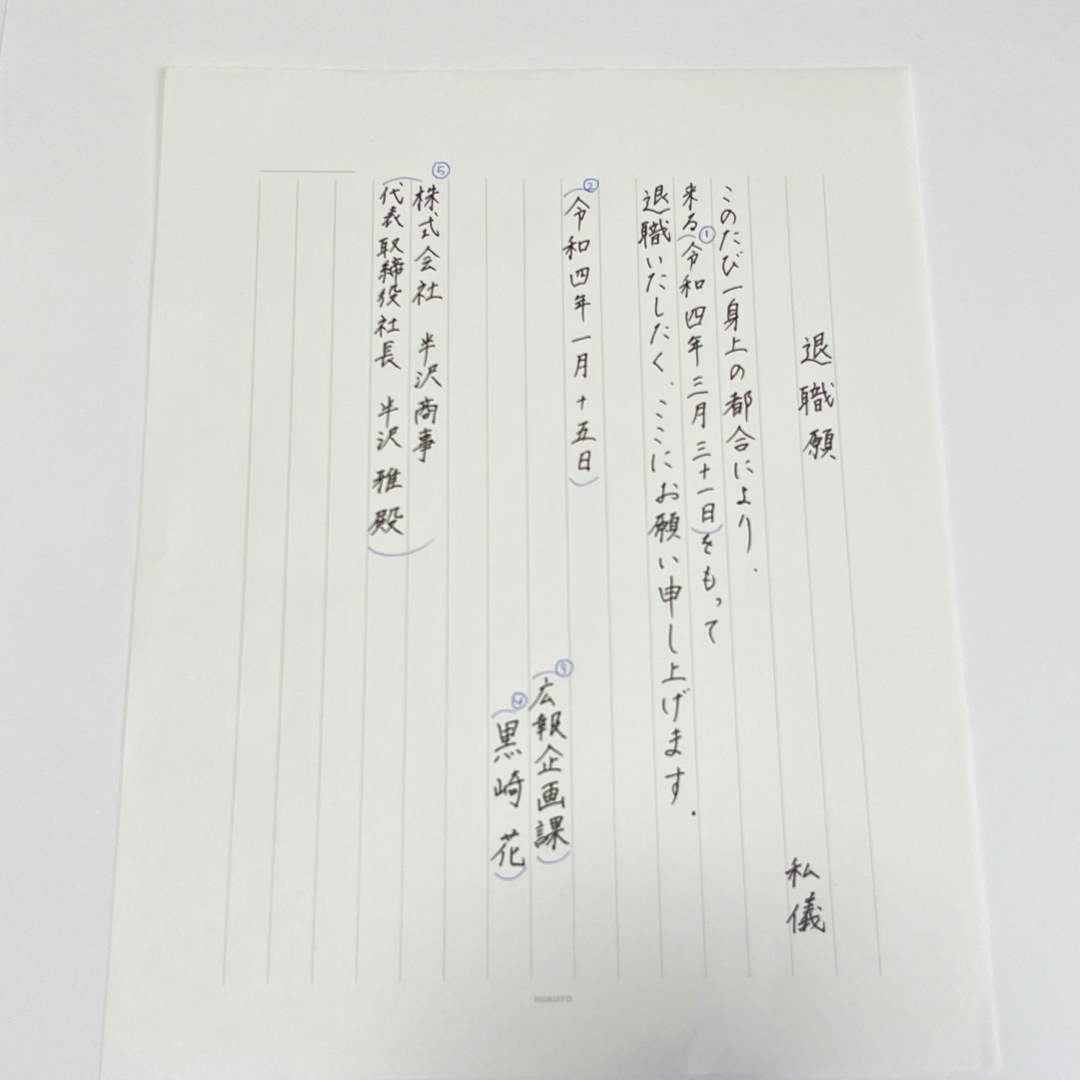 退職願
私儀
このたび一身上の都合により、
来る①(令和四年三月三十一日)をもって
退職いたしたく、ここにお願い申し上げます。
②(令和四年一月十五日)
③(広報企画課)
④(黒崎 花)
⑤(株式会社 半沢商事
代表取締役社長 半沢 雅 殿)
KOKUYO